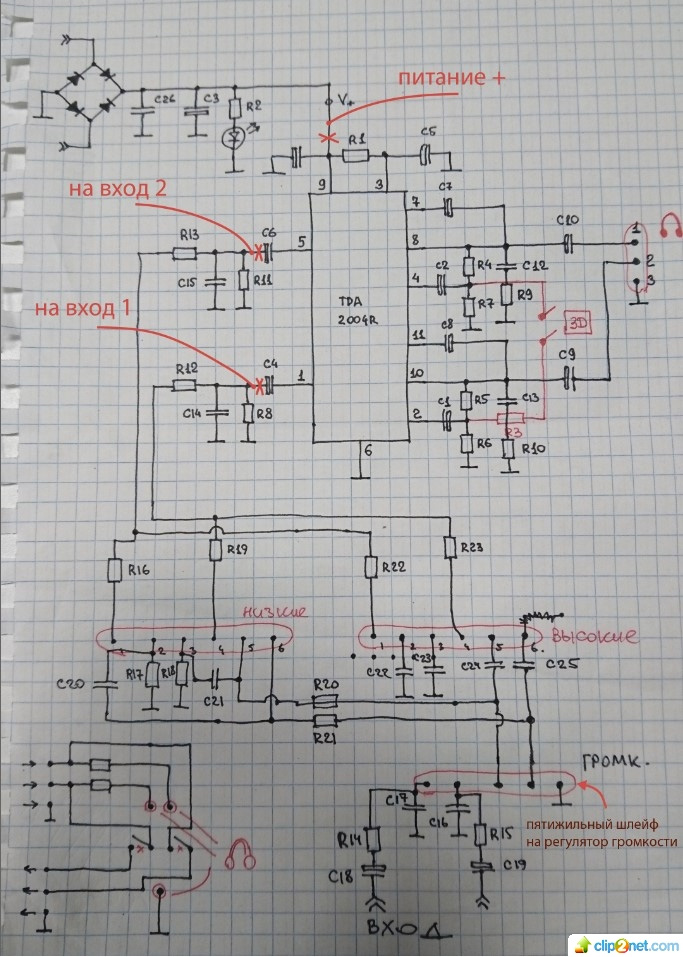 C26
C3
R2
V+
питание +
R1
C5
9
3
7
C7
на вход 2
R13
C6
5
8
C10
1
C15
R11
4
C2
R4
C12
2
R7
R9
3
TDA
2004R
на вход 1
11
C8
3D
R12
C4
1
10
C9
C14
R8
C1
R5
C13
2
R3
R6
R10
6
R16
R19
R22
R23
низкие
Высокие
1
2
3
4
5
6
1
2
3
4
5
6.
C20
R17
R18
C21
C22
C23
C24
C25
R20
R21
Громк.
C17
C16
пятижильный шлейф
на регулятор громкости
R14
R15
C18
C19
Вход
clip2net.com